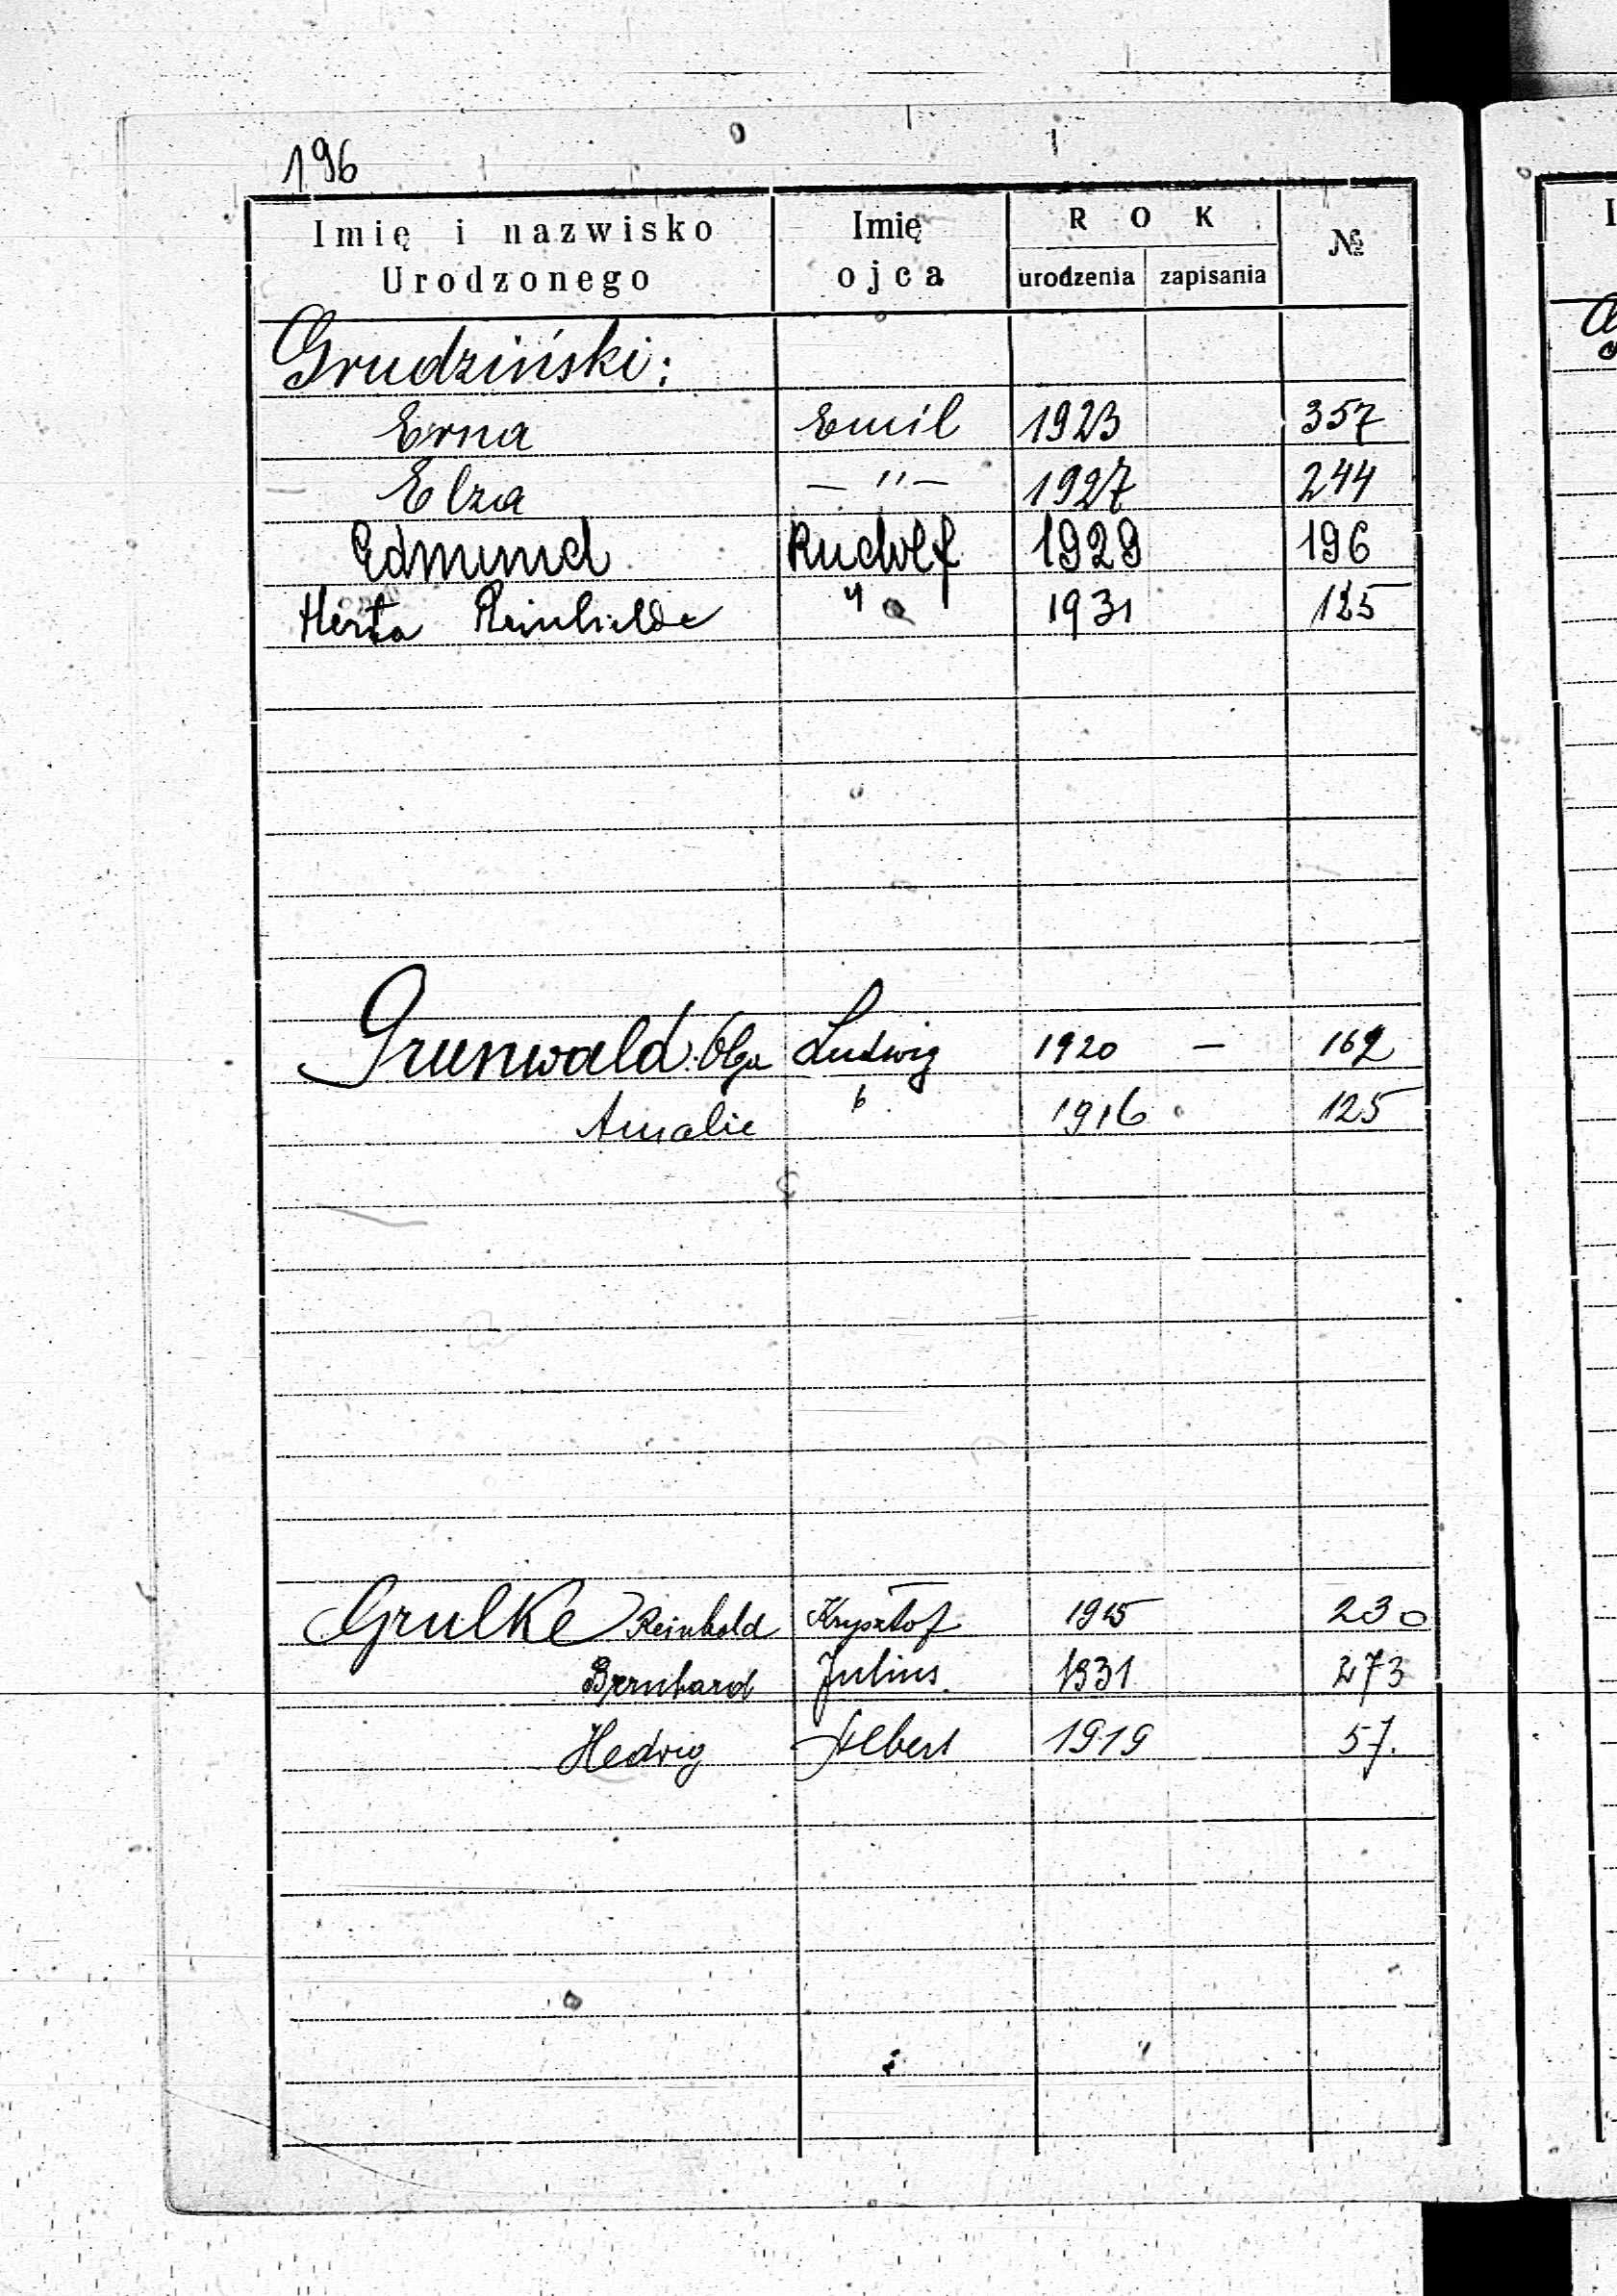 196
Imię i nazwisko Urodzonego | Imię ojca | ROK urodzenia | zapisania | №
Grudziński:
Erna | Emil | 1923 | | 357
Elza | — " — | 1927 | | 244
Edmund | Rudolf | 1929 | | 196
Herta Reinhilde | " | 1931 | | 125
Grunwald Olga | Ludwig | 1920 | — | 162
Amalie | " | 1916 | | 125
Grulke Reinhold | Krysztof | 1915 | | 230
Bernhard | Julius. | 1931 | | 273
Hedwig | Albert | 1919 | | 57.